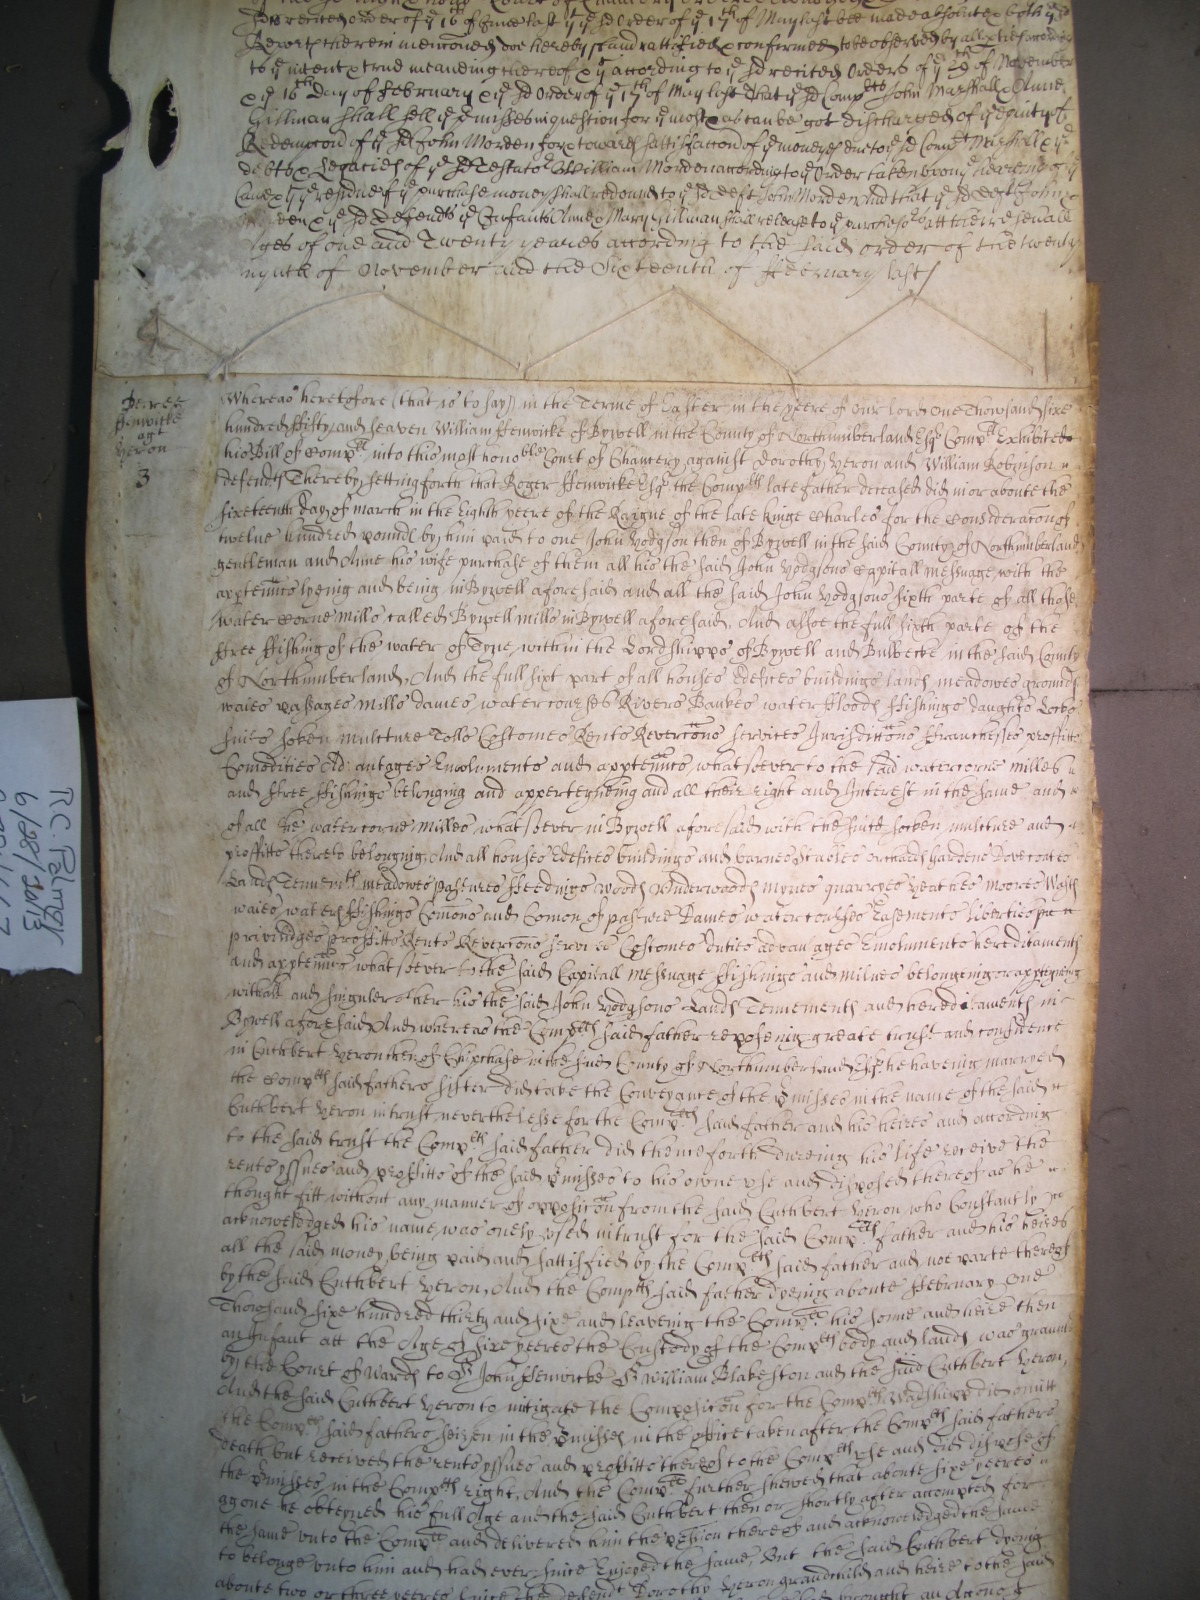 sd recited order of ye 16th of June last & ye sd Order of ye 17th of May last bee made absolute & both ye sd
Reports therein mencioned doe hereby stand rattified & confirmed to be observed by all p̱ties according
to ye intent & true meaneing thereof & yt according to ye sd recited Orders of ye 29th of November
& ye 16th day of February & ye sd Order of ye 17th of May last That ye sd Complts John Marshall & Anne
Gillman shall sell ye p̱misses in question for ye most yt can be got discharged of ye equity of
Redempcion of ye sd John Morden for & towards sattisfaccon of ye moneyes due to ye sd Complt Marshall & ye
debts & Legacies of ye sd Testator William Morden according to ye Order taken upon ye heareing of ye
Cause & yt ye residue of ye purchase money shall redound to ye sd deft John Morden And that ye sd deft John
Morden & ye sd Defendts ye Infants Anne & Mary Gillman shall release to ye purchaser att their sevall
Ages of one and Twenty yeares according to the said order of the twenty
nynth of November and the Sixteenth of February last
Decree
Fenwicke
agt
Veron
3
Whereas heretofore (that is to say) in the Terme of Easter in the yeere of our Lord One Thowsand sixe
hundred Fifty and seaven William Fenwicke of Bywell in the County of Northumberland Esqr Complt Exhibited
his Bill of Complt into this most honoble Court of Chancery against Dorothy Veron and William Robinson
defendts Thereby setting forth that Roger Fenwicke Esqr the Complts late father deceased did in or aboute the
sixteenth day of march in the Eighth yeere of the Raigne of the late Kinge Charles for the Consideracon of
twelve hundred pounds by him paid to one John Hodgson then of Bywell in the said County of Northumberland
gentleman and Anne his wife purchase of them all his the said John Hodgsons Capitall messuage with the
apptennces lyeing and being in Bywell aforesaid and all the said John Hodgsons sixth parte of all those
water Corne Mills called Bywell mills in Bywell aforesaid And alsoe the full sixth parte of the
free Fishing of the water of Tyne within the Lordshipps of Bywell and Bulbecke in the said County
of Northumberland And the full sixt part of all houses Edifices buildings lands meadowes grounds
waies passages Mills dames water courses Rivers Bankes water floods Fishings
suites soken mulcture Tolls Costomes Rents Revercons services Jurisdiccons Franchesses proffitts
Comodities Advantages Emolumentes and apptennces whatsoever to the said water corne milles
and free Fishings belonging and apperteyneing and all their right and Interest in the same and
of all the water corne milles whatsoever in Bywell aforesaid with the suite socken mulcture and
proffitts thereto belonging And all houses Edifices buildings and barnes Stables Orchards Gardens Dovecoates
Lands Tenements meadowes pastures Feedings woods Underwoods mynes quarryes heathes moores
waies waters Fishings Comons and Comon of pasture Dames water courses Easements liberties
priviledges proffitts Rents Revercons services Costomes duties advantages Emolumentes hereditaments
and apptennces whatsoever to the said Capitall messuage Fishings and milnes belongeing or apperteyning
withall and singuler other his the said John Hodgsons Lands Tennements and heredicaments in
Bywell aforesaid And whereas the Complts said father reposeing greate trust and confidence
in Cuthbert Veron then of in the said County of Northumberland Esqr he haveing marryed
the Complts said fathers sister did take the Conveyance of the p̱misses in the name of the said
Cuthbert Veron in trust neverthelesse for the Complts said father and his heires and according
to the said trust the Complts said father did thenceforth dureing his life receive the
rents yssues and proffitts of the said p̱misses to his owne use and disposed thereof as he
thought fitt without any manner of opposicon from the said Cuthbert Veron who Constantly
acknowledged his name was onely used in trust for the said Complts father and his heires
all the said money being paid and sattisfied by the Complts said father and noe parte thereof
by the said Cuthbert Veron, And the Complts said father dyeing aboute February One
Thowsand sixe hundred thirty and sixe and leaveing the Complt his sonne and heire then
an Infant att the Age of sixe yeeres the Custody of the Complts body and lands was graunted
by the Court of Wards to Sr John Fenwicke Sr William Blakeston and the said Cuthbert Veron,
And the said Cuthbert Veron to mitigate the Composicon for the Complts Wardshipp did omitt
the Complts said fathers seizen in the p̱misses in the office taken after the Complts said fathers
death but received the rents yssues and proffitts thereof to the Complts use and did dispose of
the p̱misses in the Complts right. And the Complt further shewed that aboute sixe yeeres
agone he obteyned his full Age and the said Cuthbert then or shortly after accompted for
the same unto the Complt and delivered him the possion thereof and acknowledged the same
to belonge unto him and had ever since Enjoyed the same, But the said Cuthbert dying
aboute two or three yeeres since the defendt Dorothy Veron grandchild and heire to the said
brought an Accon of
R.C. Palmer
6/28/2013